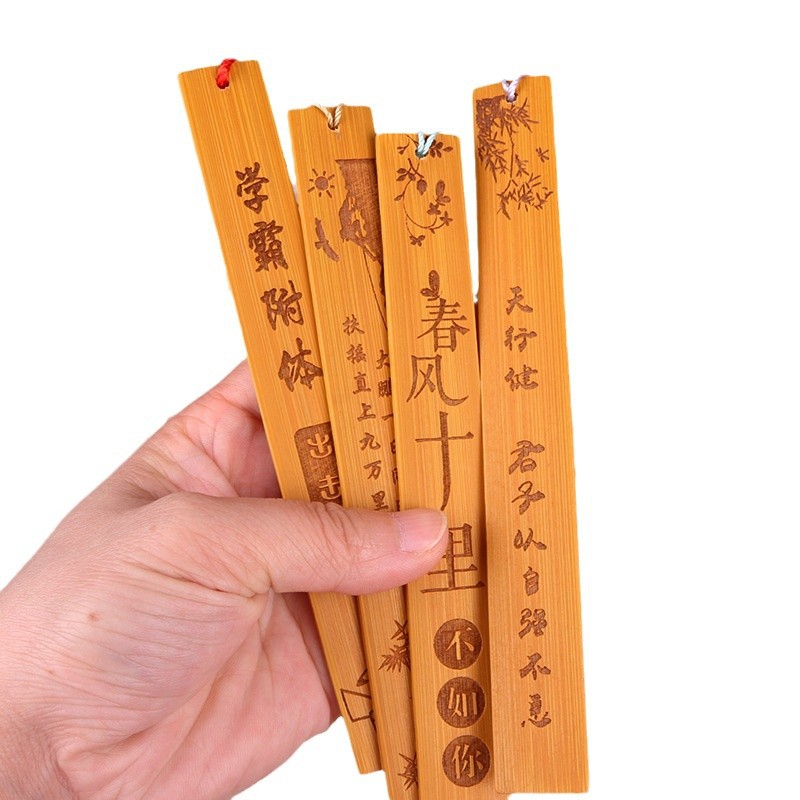 学霸附体
出击
大鹏一日同
扶摇直上九万里
春风十里
不如你
天行健
君子以自强不息